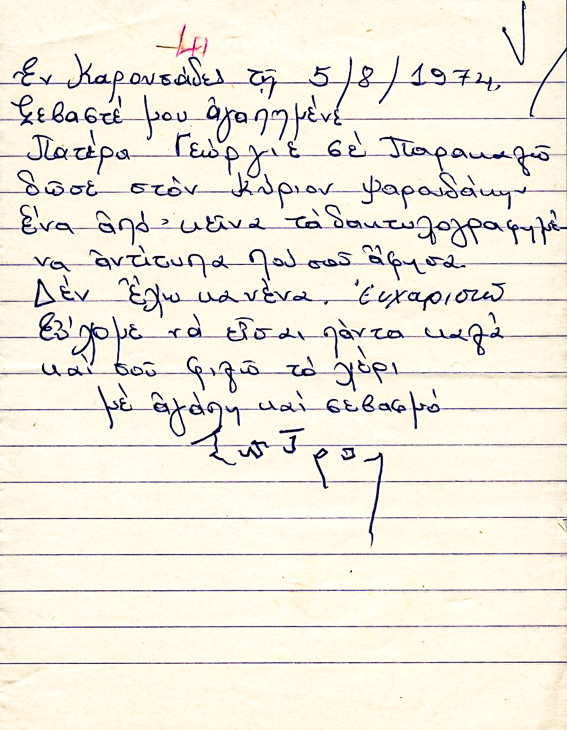 41
Ἐν Καρουσάδες τῇ 5/8/1974
Σεβαστέ μου ἀγαπημένε
Πατέρα Γεώργιε σέ Παρακαλῶ
δῶσε στόν Κύριον Ψαρουδάκην
ἕνα ἀπό κεῖνα τά δακτυλογραφημέ-
να ἀντίτυπα πού σοῦ ἄφησα.
Δέν ἔχω κανένα. Εὐχαριστῶ
Εὔχομε νά εἶσαι πάντα καλά
καί σοῦ φιλῶ τό χέρι
μέ ἀγάπη καί σεβασμό
Σπῖρος